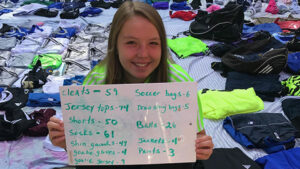 Cleats - 59
Jersey tops - 74
Shorts - 50
Socks - 61
Shin guards - 47
goalie gloves - 4
goalie Jersey - 9
Soccer bags - 6
Drawstring bags - 5
Balls - 26
Jackets - 14
Pants - 3